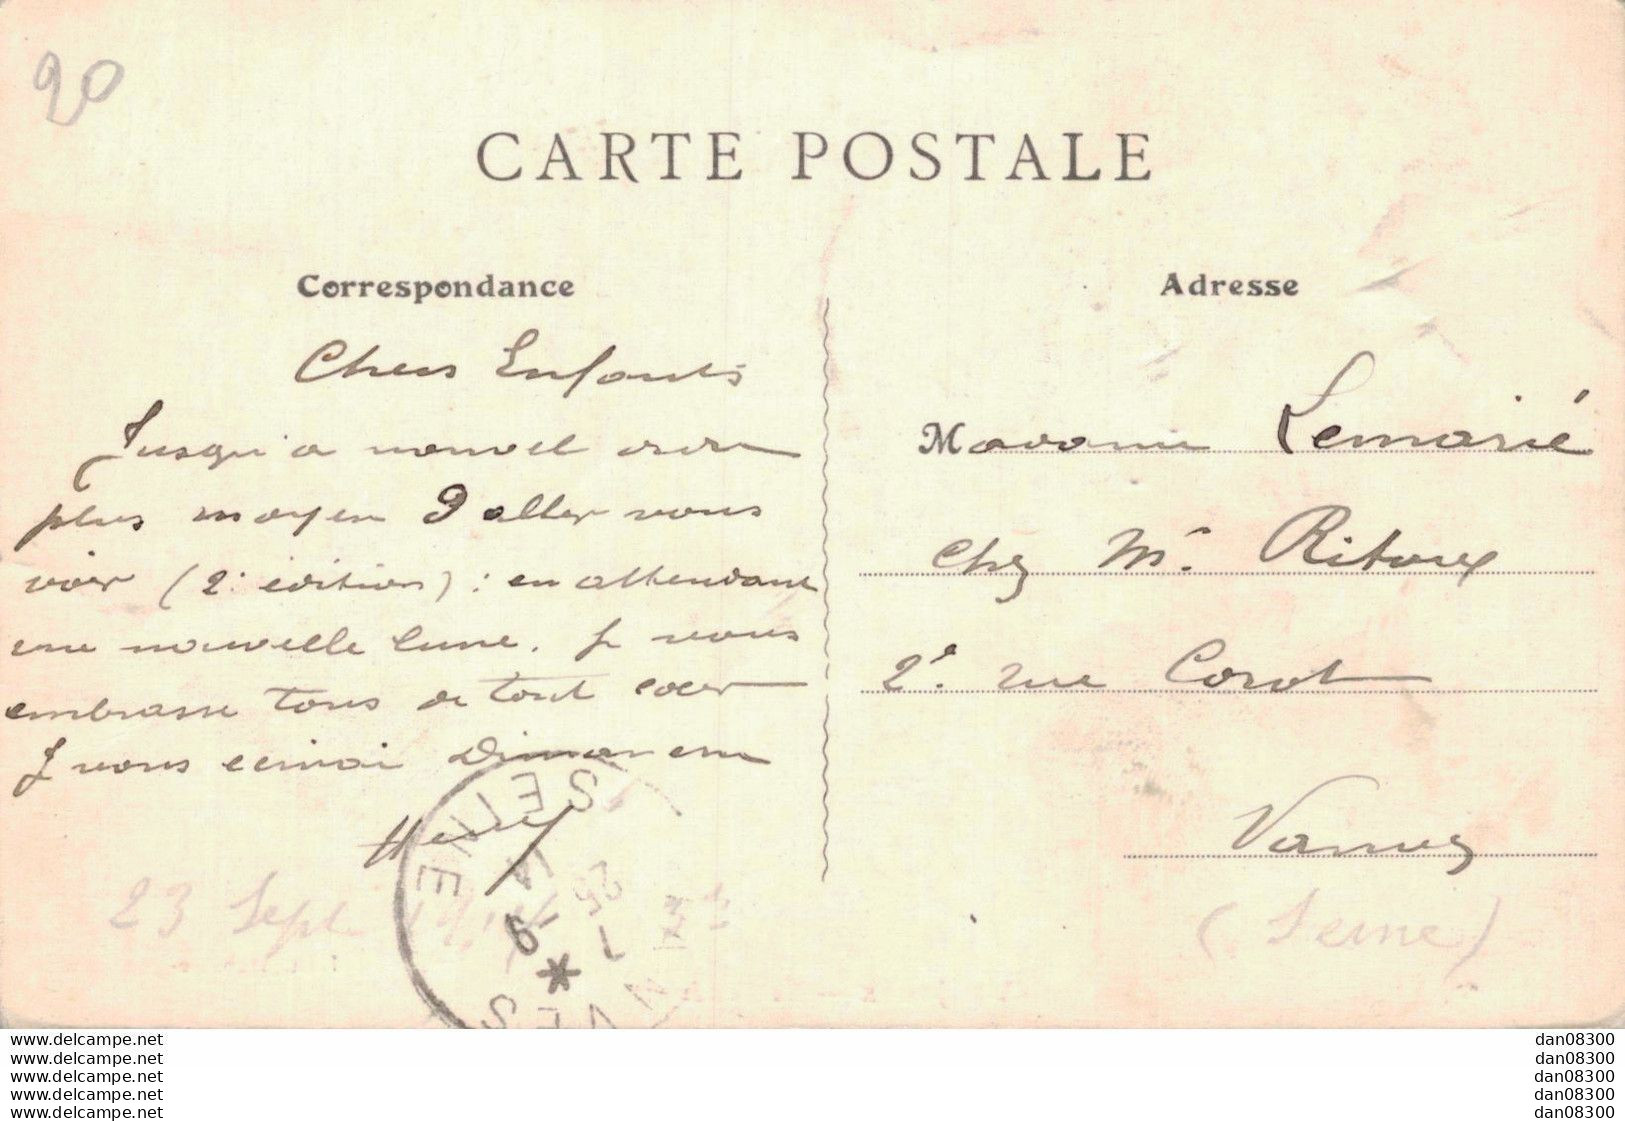 20
CARTE POSTALE
Correspondance
Chers Enfants
Jusqu'à nouvel ordre
plus moyen d'aller vous
voir (2e édition) : en attendant
une nouvelle lune. Je vous
embrasse tous de tout cœur
Je vous écrirai Dimanche
Henry
23 Sept.
SEINE
Adresse
Madame Lemarié
chez Mr. Ritoux
2. rue Corot
Vanves
(Seine)
www.delcampe.net
www.delcampe.net
www.delcampe.net
www.delcampe.net
www.delcampe.net
dan08300
dan08300
dan08300
dan08300
dan08300